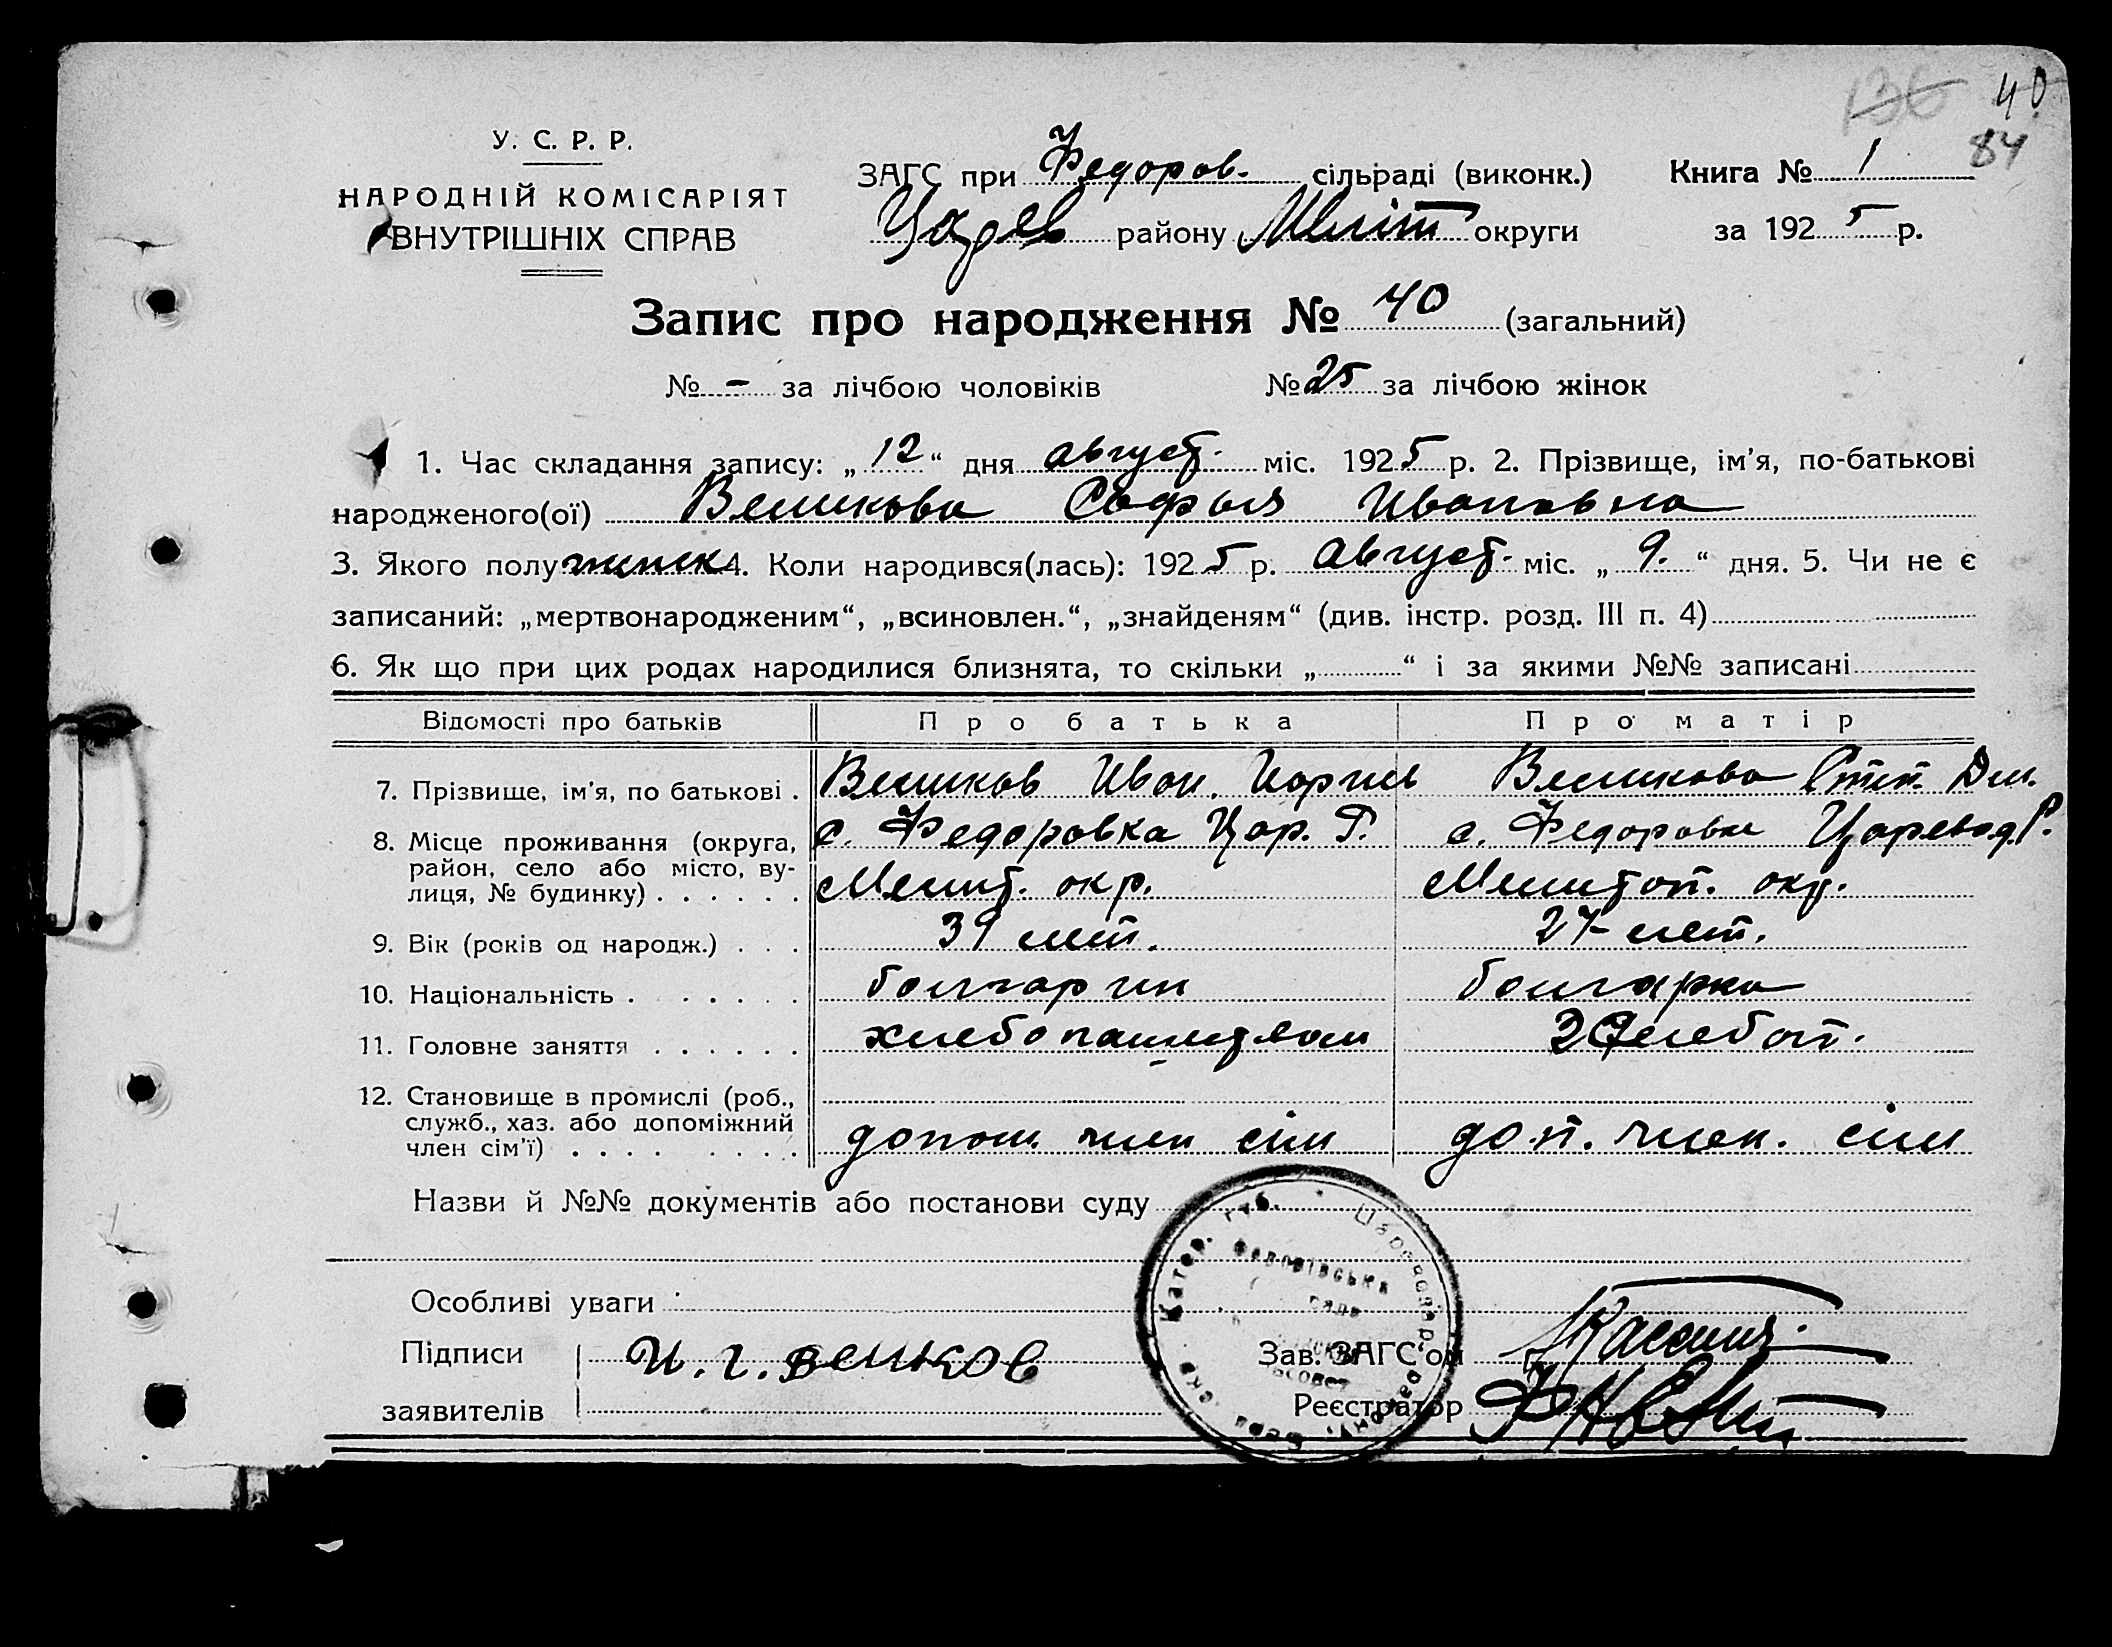 136 40
84
У. С. Р. Р.
НАРОДНІЙ КОМІСАРІЯТ
ВНУТРІШНІХ СПРАВ
ЗАГС при Федоров. сільраді (виконк.) Книга № 1
Царев району Меліт округи за 1925 р.
Запис про народження № 40 (загальний)
№ - за лічбою чоловіків № 25 за лічбою жінок
1. Час складання запису: „12“ дня август. міс. 1925 р. 2. Прізвище, ім’я, по-батькові
народженого(ої) Великова Софья Ивановна
3. Якого полу 4. Коли народився(лась): 1925 р. Август. міс. „9.“ дня. 5. Чи не є
записаний: „мертвонародженим“, „всиновлен.“, „знайденям“ (див. інстр. розд. III п. 4)
6. Як що при цих родах народилися близнята, то скільки „ “ і за якими №№ записані
Відомості про батьків Про батька Про матір
7. Прізвище, ім’я, по батькові . Великов Иван. Великова Степ. Дм.
8. Місце проживання (округа, с. Федоровка Цар. Р. с. Федоровка Царевод. Р.
район, село або місто, ву-
лиця, № будинку) . . . . . . Мелит. окр. Мелитоп. окр.
9. Вік (років од народж.) . . . 39 лет. 27 лет.
10. Національність . . . . . . болгарин болгарка
11. Головне заняття . . . . . . хлебопашеством
12. Становище в промислі (роб.,
служб., хаз. або допоміжний
член сім’ї) . . . . . . . . допом. член сім доп. член. сім
Назви й №№ документів або постанови суду
Катер. губ.
Особливі уваги
Підписи И. г. великов Зав. ЗАГС’ом
заявителів Реєстратор